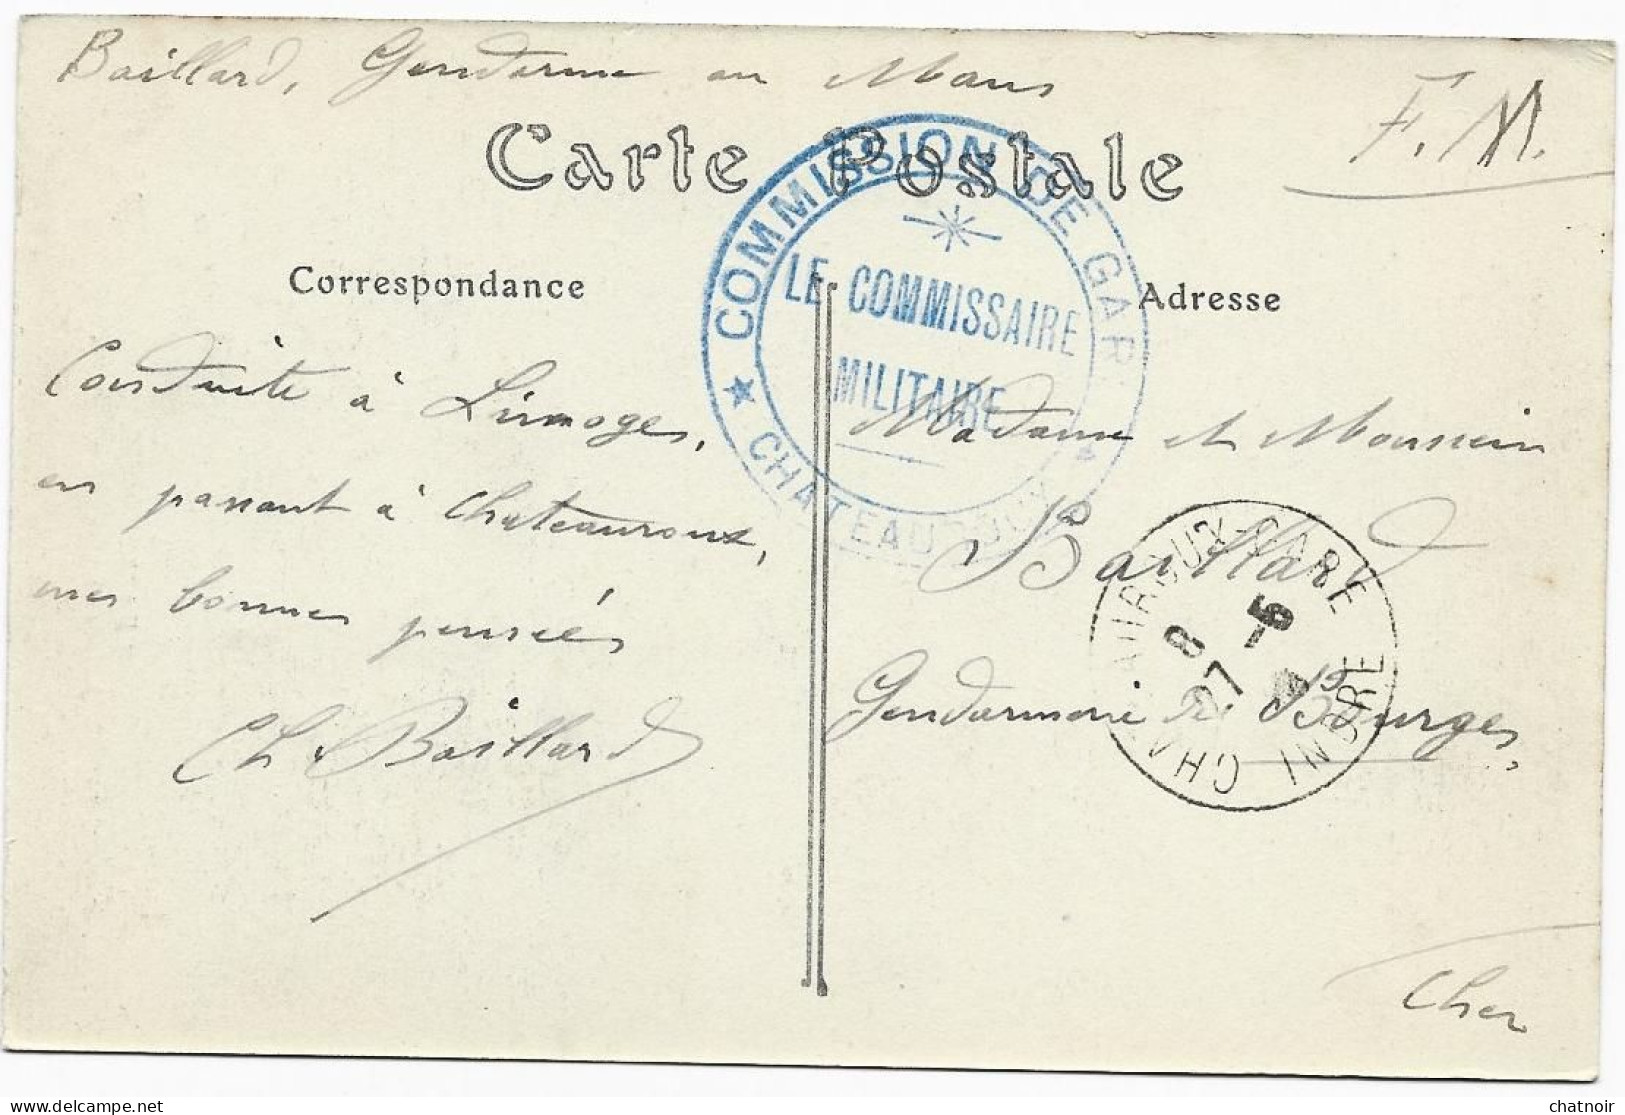 Baillard, Gendarme au Mans
F.M.
Carte Postale
COMMISSION DE GARE
LE COMMISSAIRE
MILITAIRE
CHATEAUROUX
Correspondance
Conduite à Limoges,
en passant à Chateauroux,
mes bonnes pensées
Ch Baillard
Adresse
Madame et Monsieur
Baillard
Gendarmerie Bourges,
Cher
CHATEAUROUX-GARE
INDRE
8
27 -5
chatnoir